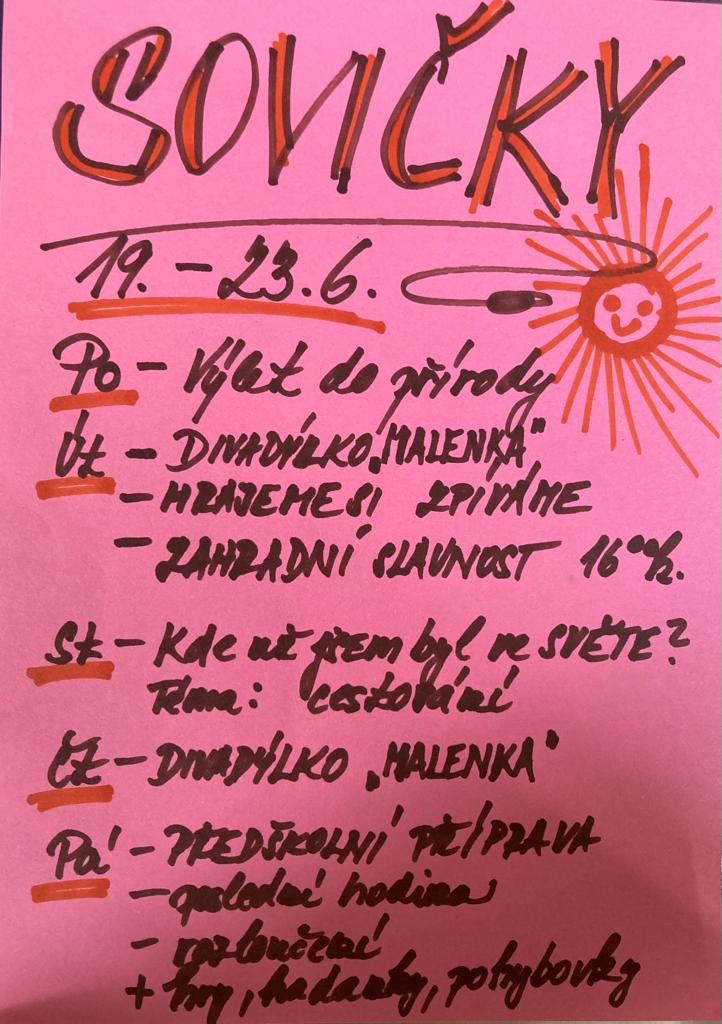 SOVIČKY
19. – 23.6.
Po – Výlet do přírody
Út – DIVADÝLKO „MALENKA"
– HRAJEME SI ZPÍVÁME
– ZAHRADNÍ SLAVNOST 16⁰⁰h.
St – Kde už jsem byl ve SVĚTE?
Téma: cestování
Čt – DIVADÝLKO „MALENKA"
Pá – PŘEDŠKOLNÍ PŘÍPRAVA
– poslední hodina
– rozloučení
+ hry, hádanky, pohybovky